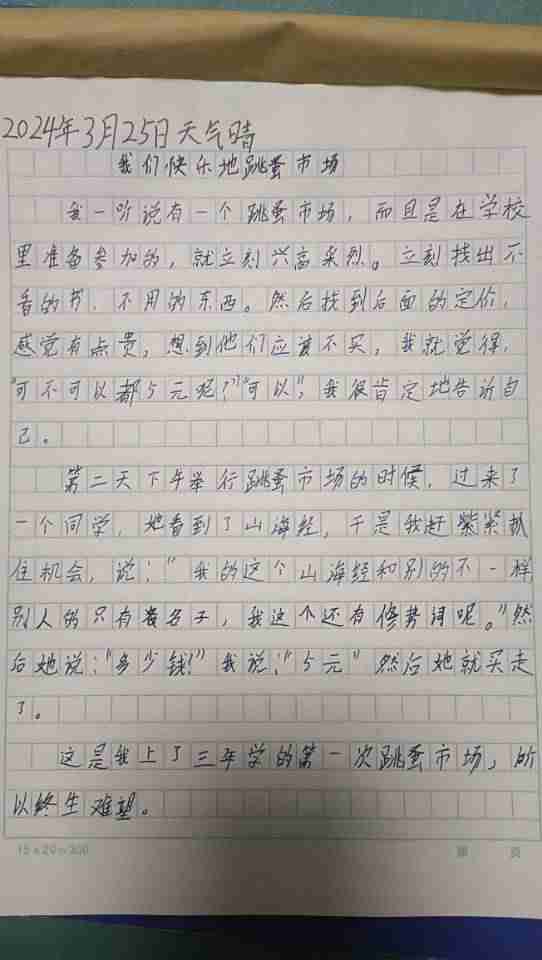 2024年3月25日天气晴
我们快乐地跳蚤市场
我一听说有一个跳蚤市场，而且是在学校
里准备参加的，就立刻兴高采烈。立刻找出不
看的书、不用的东西。然后找到后面的定价，
感觉有点贵，想到他们应该不买，我就觉得，
“可不可以都5元呢？”“可以”，我很肯定地告诉自
己。
第二天下午举行跳蚤市场的时候，过来了
一个同学，她看到了山海经，于是我赶紧紧抓
住机会，说：“我的这个山海经和别的不一样，
别人的只有名子，我这个还有修势词呢。”然
后她说：“多少钱？”我说：“5元”然后她就买走
了。
这是我上了三年学的第一次跳蚤市场，所
以终生难望。
15×20=300
第 页